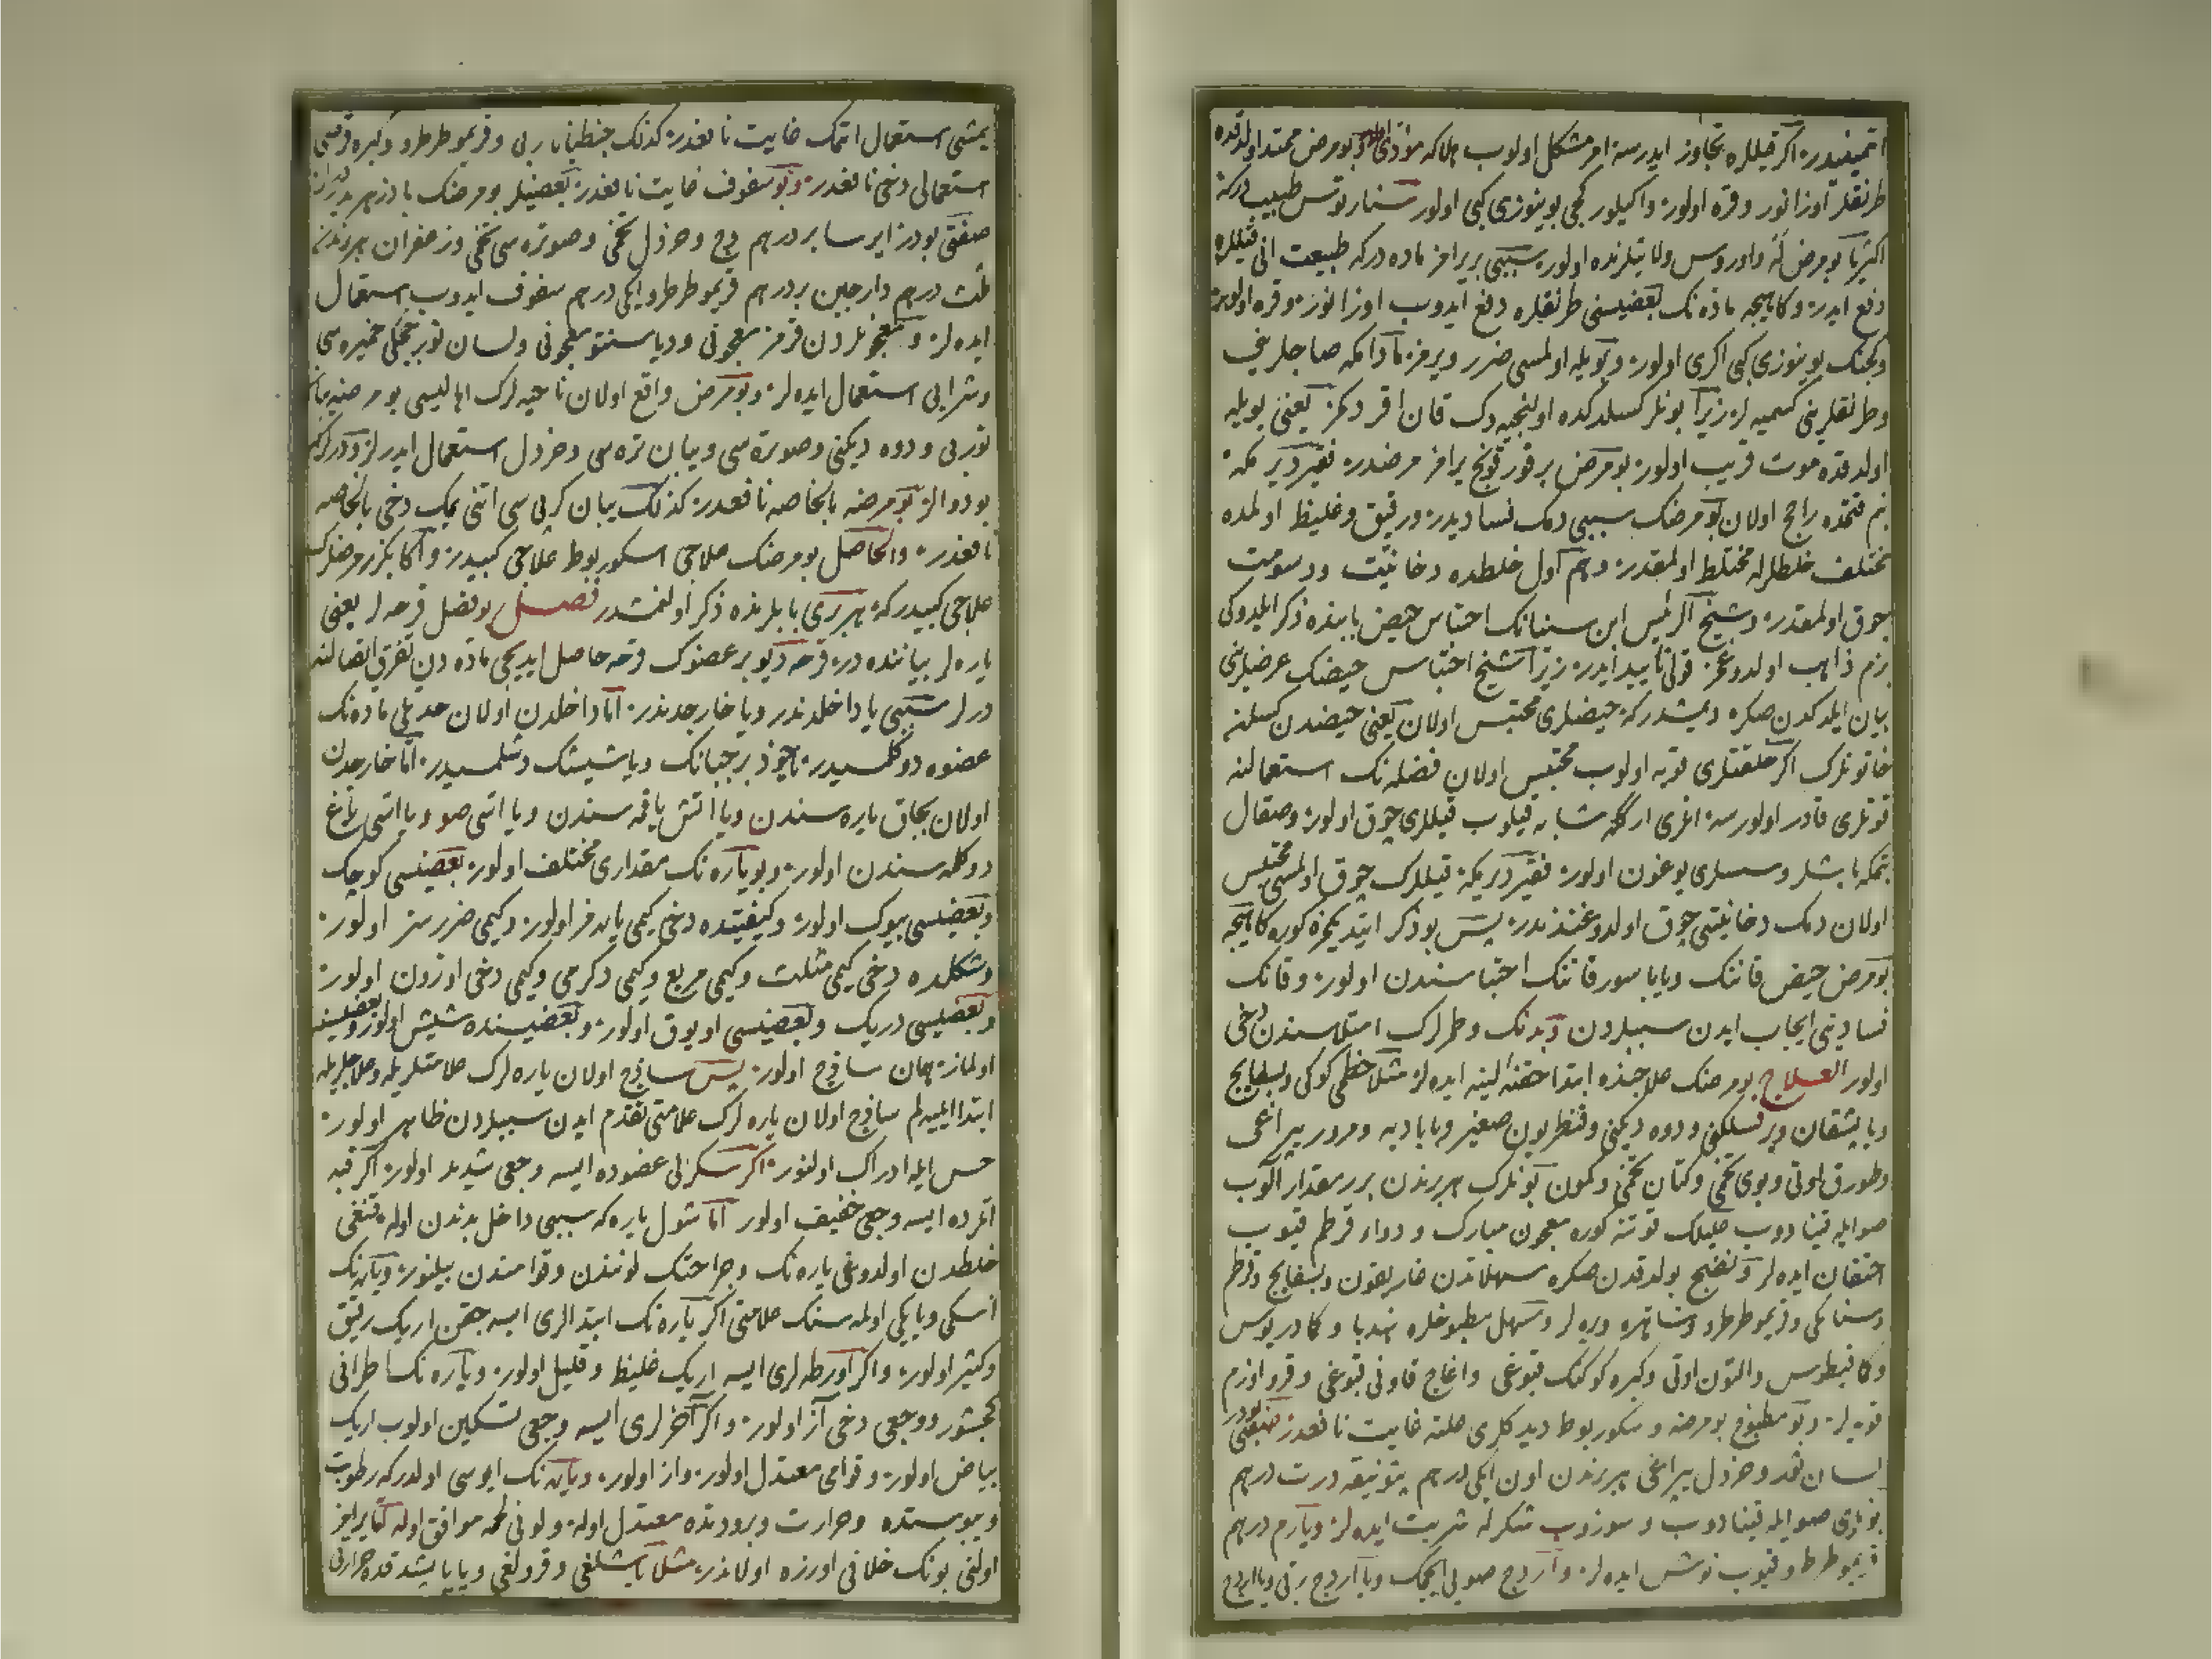 اتمیندر اکر قیللره تجاوز ایدرسه امر مشکل اولوب هلاکه مؤدی اولور بو مرض ممتد اولدقده
طرنقلر اوزانور و قره اولور و اکیلور کچی بوینوزی کبی اولور سنارتوس طبیب دیرکه
اکثریا بو مرض له و اوروس ولایتلرنده اولور سببی بر یرامز ماده درکه طبیعت انی قیللره
دفع ایدر و کاهیجه ماده نک بعضیسنی طرنقلره دفع ایدوب اوزانور و قره اولور
و کچنک بوینوزی کبی اکری اولور و بویله اولمسی ضرر ویرمز مادامکه صاچلرینی
و طرنقلرینی کسمیه لر زیرا بونلر کسلدکده اولنجیه دک قان اقر دکمز یعنی بویله
اولدقده موت قریب اولور بو مرض بر قورقونج یرامز مرضدر فقیر دیر که
بنم قتمده راجح اولان بو مرضک سببی دمک فسادیدر و رقیق و غلیظ اولمده
مختلف خلطلرله مختلط اولمقدر و هم اول خلطده دخانیت و دسومت
چوق اولمقدر و شیخ الرئیس ابن سینانک احتباس حیض بابنده ذکر ایلدوکی
بزم ذاهب اولدوغمز قولی تایید ایدر زیرا شیخ احتباس حیضک عرضلرینی
بیان ایلدکدن صکره دیمشدرکه حیضلری محتبس اولان یعنی حیضدن کسلنه
خاتونلرک اکر خلقتلری قویه اولوب محتبس اولان فضله نک استعمالنه
قوتلری قادر اولورسه انلری ارککه مشابه قیلوب قیللری چوق اولور و صقال
بتمکه باشلر و سسلری یوغون اولور فقیر دیریکه قیللرک چوق اولمسی محتبس
اولان دمک دخانیتی چوق اولدوغندندر پس بو ذکر ایتدیکمزه کوره کاهیجه
بو مرض حیض قاننک و یا باسور قاننک احتباسندن اولور و قانک
فسادینی ایجاب ایدن سببلردن و بدنک و طمرلرک امتلاسندن دخی
اولور العلاج بو مرضک علاجنده ابتدا حقنه لینه ایده لر مثلا خطمی کوکی و بسفایج
و یا پیشقان و یر فسلکنی و دوه دیکنی و قنطریون صغیر و بابادیه و مرور یپراغی
و طورق اوتی و بوی تخمی و کتان تخمی و کمون بونلرک هربرندن برر مقدار الوب
صوایله قینادوب علیلک قوتنه کوره معجون مبارک و دواء قرطم قیوب
احتقان ایده لر و نضج بولدقدن صکره مسهلاتدن غاریقون و بسفایج و قرطم
و سنامکی و قریموطرطرو و شاهتره ویره لر و مسهل مطبوخلره هندبا و کمادریوس
و کمافیطوس و التون اوتی و کبره کوکنک قبوغی و اغاج قاونی قبوغی و قرو اوزم
قویه لر و بو مطبوخ بو مرضه و سکوربوط دیدکلری علته غایت نافعدر صنعتی بودر
لسان ثور و خردل یپراغی هربرندن اون ایکی درهم پتونیقه درت درهم
بونلری صوایله قینادوب و سوزوب شکرله شربت ایده لر و یارم درهم
قریموطرطرو قیوب نوش ایده لر و آردج صویی ایچمک و یا آردج ربی و یا اردج
یمشی استعمال اتمک غایت نافعدر کذلک جنطیانا ربی و قریموطرطرو و کبره قرصی
استعمالی دخی نافعدر و بو سفوف غایت نافعدر بعضیلر بو مرضک پادزهریدر دیرلر
صنعتی بودر ایرسا بر درهم وج و خردل تخمی و صوتره سی تخمی و زعفران هربرندن
ثلث درهم دارچین بر درهم قریموطرطرو ایکی درهم سفوف ایدوب استعمال
ایده لر و معجونلردن قرمز معجونی و دیاسنتو معجونی و لسان ثور چیچکی خمیره سی
و شرابی استعمال ایده لر و بو مرض واقع اولان ناحیه لرک اهالیسی بو مرضه یبان
توربی و دوه دیکنی و صوتره سی و یبان تره سی و خردل استعمال ایدرلر و دیرلرکه
بو دوالر بو مرضه بالخاصه نافعدر کذلک یبان کرپی سی اتنی یمک دخی بالخاصه
نافعدر و الحاصل بو مرضک علاجی اسکوربوط علاجی کبیدر و اکا بکزر مرضلرک
علاجی کبیدرکه هر بری بابلرنده ذکر اولنمشدر فصل بو فصل قرحه لر یعنی
یاره لر بیاننده در قرحه دیو بر عضوک قرحه حاصل ایدیجی ماده دن تفرق اتصالنه
دیرلر سببی یا داخلدندر و یا خارجدندر اما داخلدن اولان حدتلی ماده نک
عضوه دوکلمسیدر یاخوذ بر چبانک و یا شیشک دشلمسیدر اما خارجدن
اولان بچاق یاره سندن و یا اتش یاقه سندن و یا اتشی صو و یا اتشی یاغ
دوکلمه سندن اولور و بو یاره نک مقداری مختلف اولور بعضیسی کوچک
و بعضیسی بیوک اولور و کیفیتده دخی کیمی یرامز اولور و کیمی ضررسز اولور
و شکلده دخی کیمی مثلث و کیمی مربع و کیمی دکرمی و کیمی دخی اوزون اولور
و بعضیسی دریک و بعضیسی اویوق اولور و بعضیسنده شیش اولور و بعضیسنده
اولماز همان ساذج اولور پس ساذج اولان یاره لرک علامتلریله و علاجلریله
ابتدا ایلیه لم ساذج اولان یاره لرک علامتی تقدم ایدن سببلردن ظاهر اولور
حس ایله ادراک اولنور اکر سکرلی عضوده ایسه وجعی شدید اولور اکر قبه
اتلرده ایسه وجعی خفیف اولور اما شول یاره که سببی داخل بدندن اوله قنغی
خلطدن اولدوغی یاره نک و جراحتک لونندن و قوامندن بیلنور و یاره نک
اسکی و یا یکی اولمه سنک علامتی اکر یاره نک ابتدالری ایسه چقن اریک رقیق
و کثیر اولور و اکر اورطه لری ایسه اریک غلیظ و قلیل اولور و یاره نک اطرافی
کچشور و وجعی دخی آز اولور و اکر آخرلری ایسه وجعی تسکین اولوب اریک
بیاض اولور و قوامی معتدل اولور و از اولور و یاره نک ایوسی اولدرکه رطوبت
و یبوستده و حرارت و برودتده معتدل اوله و لونی لحمه موافق اوله اما یرامز
اولنی بونک خلافی اوزره اولاندر مثلا یشلغی و قرولغی و یا یاپشدقده حرارتی